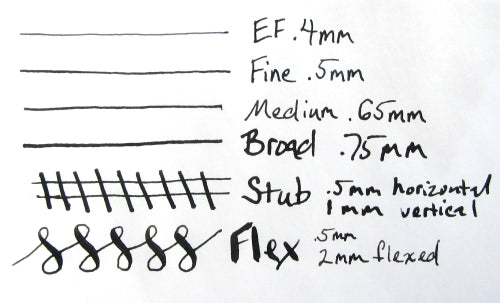 EF .4mm
Fine .5mm
Medium .65mm
Broad .75mm
Stub .5mm horizontal
1mm vertical
Flex .5mm
2mm flexed